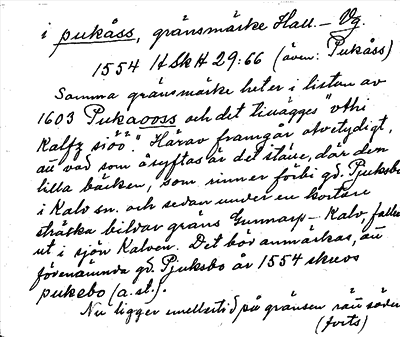 i pukåss, gränsmärke Hall. – Vg.
1554 HSkH 29:66 (även: Pukåss)
Samma gränsmärke heter i listan av
1603 Pukaooss och det tillägges "vthi
Kalfz siöö." Härav framgår otvetydigt,
att vad som åsyftas är det ställe, där den
lilla bäcken, som rinner förbi gd. Pjuksbo
i Kalv sn. och sedan under en kortare
sträcka bildar gräns Gunnarp – Kalv, faller
ut i sjön Kalven. Det bör anmärkas, att
förenämnda gd. Pjuksbo år 1554 skrevs
pukebo (a.st.).
Nu ligger emellertid på gränsen rätt söder
(forts)